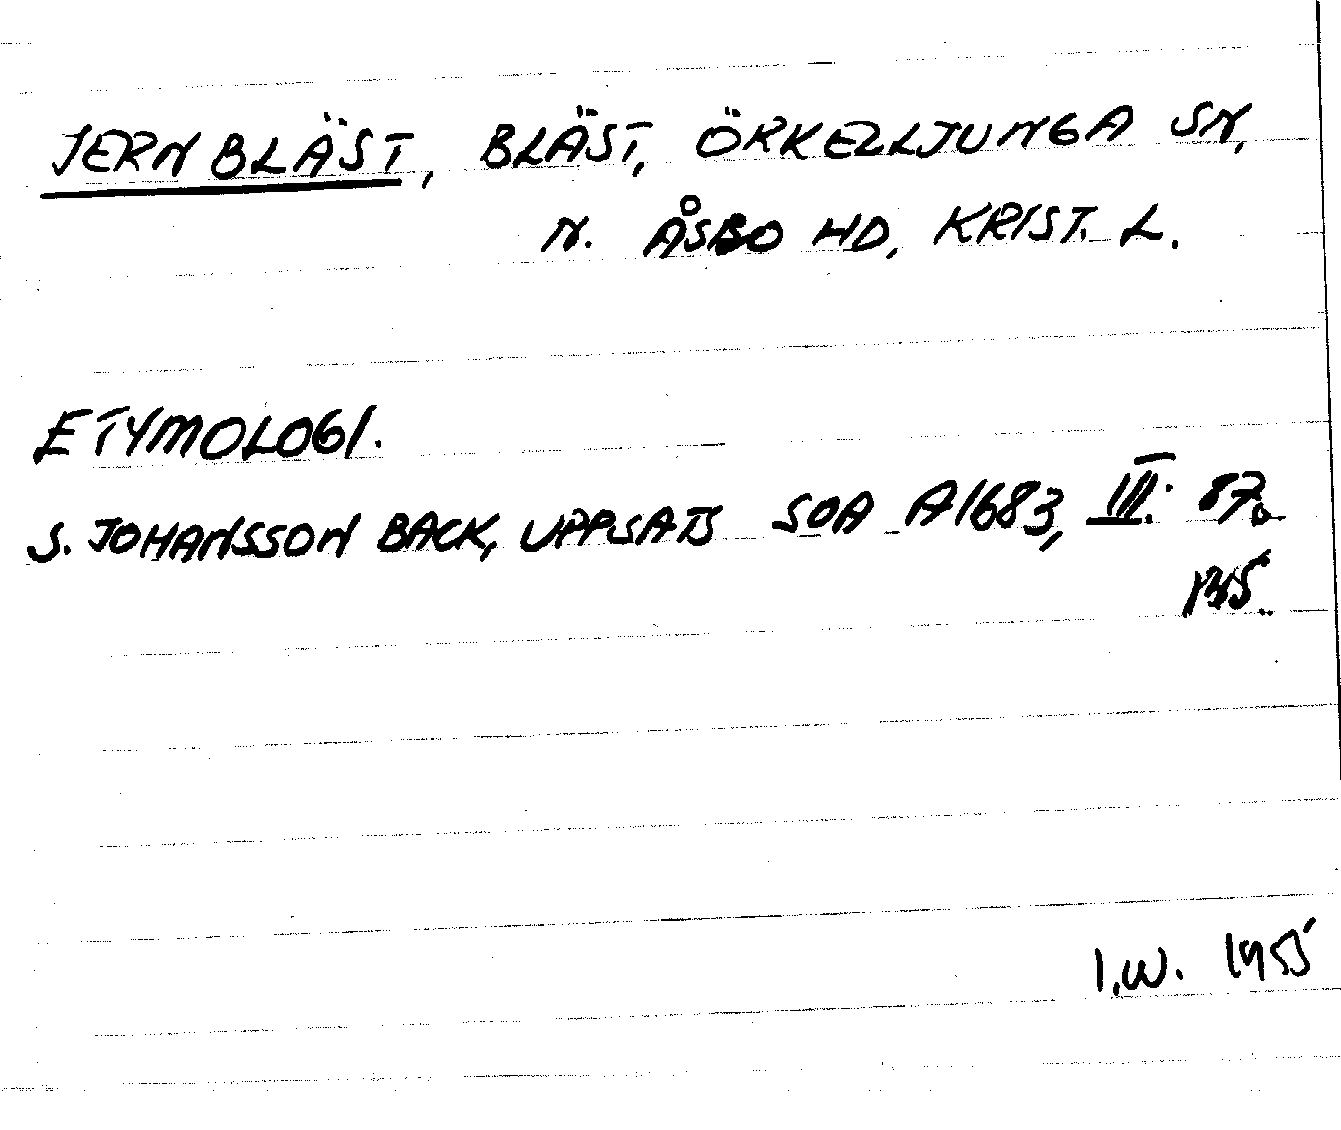 JERNBLÄST, BLÄST, ÖRKELLJUNGA SN,
N. ÅSBO HD, KRIST. L.
ETYMOLOGI.
S. JOHANSSON BACK, UPPSATS SOA A1683, III: 87.
I.W. 1955